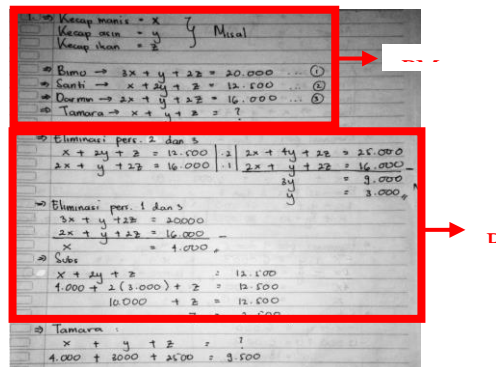 1. ⇒ Kecap manis = x
Kecap asin = y } Misal
Kecap ikan = z
⇒ Bimo → 3x + y + 2z = 20.000 ... ①
⇒ Santi → x + 2y + z = 12.500 ... ②
⇒ Darmn → 2x + y + 2z = 16.000 ... ③
⇒ Tamara → x + y + z = ?
⇒ Eliminasi pers. 2 dan 3
x + 2y + z = 12.500 | .2 | 2x + 4y + 2z = 25.000
2x + y + 2z = 16.000 | .1 | 2x + y + 2z = 16.000 −
3y = 9.000
y = 3.000
⇒ Eliminasi pers. 1 dan 3
3x + y + 2z = 20.000
2x + y + 2z = 16.000 −
x = 4.000
⇒ Subs
x + 2y + z = 12.500
4.000 + 2(3.000) + z = 12.500
10.000 + z = 12.500
⇒ Tamara :
x + y + z = ?
4.000 + 3000 + 2500 = 9.500